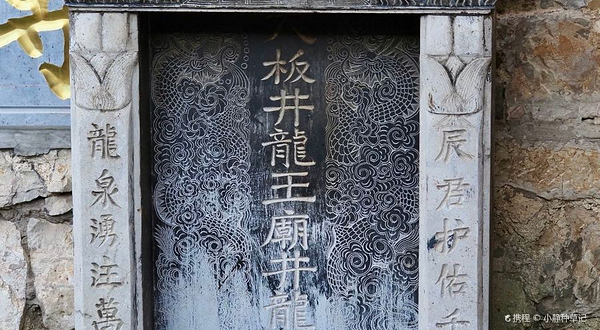 辰君护佑千
板井龍王廟井龍
龍泉湧注萬
携程 © 小静种草记